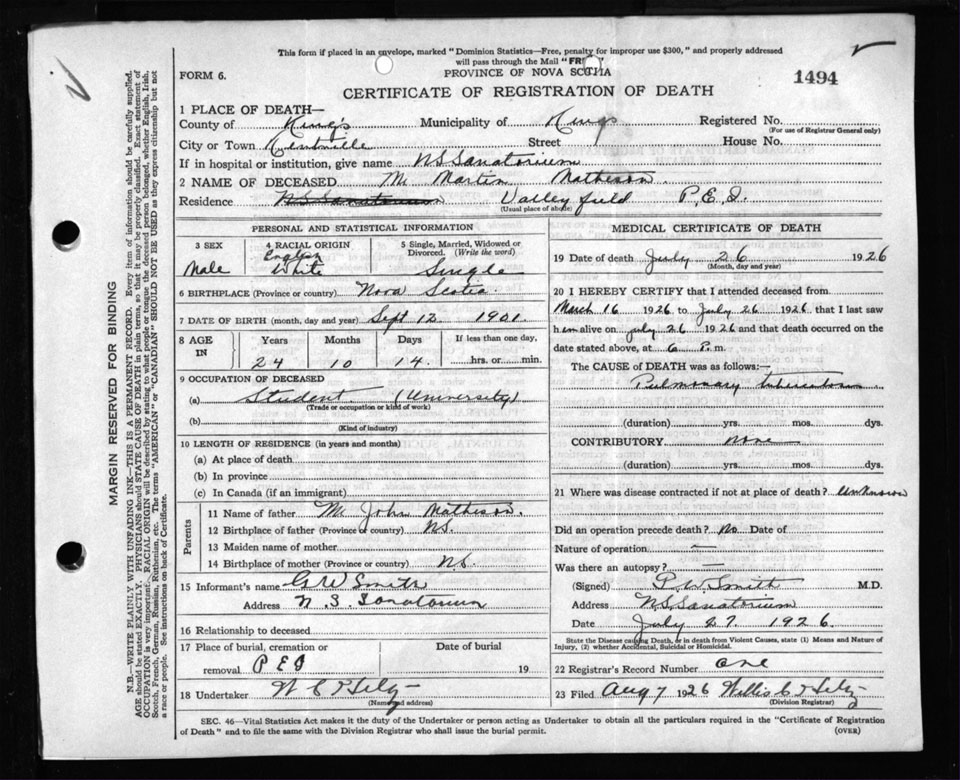 This form if placed in an envelope, marked "Dominion Statistics—Free, penalty for improper use $300," and properly addressed
will pass through the Mail "FREE"
FORM 6.
PROVINCE OF NOVA SCOTIA
1494
CERTIFICATE OF REGISTRATION OF DEATH
1 PLACE OF DEATH—
County of King's Municipality of Kings Registered No.
(For use of Registrar General only)
City or Town Kentville Street House No.
If in hospital or institution, give name NS Sanatorium
2 NAME OF DECEASED Mr Martin Matheson
Residence NS Sanatorium Valleyfield P.E.I.
(Usual place of above)
PERSONAL AND STATISTICAL INFORMATION
3 SEX
Male
4 RACIAL ORIGIN
English
White
5 Single, Married, Widowed or
Divorced. (Write the word)
Single
6 BIRTHPLACE (Province or country) Nova Scotia
7 DATE OF BIRTH (month, day and year) Sept 12 1901
8 AGE
IN
Years Months Days If less than one day,
24 10 14 hrs. or min.
9 OCCUPATION OF DECEASED
(a) Student (University)
(Trade or occupation or kind of work)
(b)
(Kind of industry)
10 LENGTH OF RESIDENCE (in years and months)
(a) At place of death
(b) In province
(c) In Canada (if an immigrant)
Parents
11 Name of father Mr John Matheson
12 Birthplace of father (Province or country) NS.
13 Maiden name of mother
14 Birthplace of mother (Province or country) NS.
15 Informant's name G W Smith
Address N. S. Sanatorium
16 Relationship to deceased
17 Place of burial, cremation or Date of burial
removal P E I 19
18 Undertaker
(Name and address)
MEDICAL CERTIFICATE OF DEATH
19 Date of death July 26 1926
(Month, day and year)
20 I HEREBY CERTIFY that I attended deceased from
March 16 1926 to July 26 1926, that I last saw
him alive on July 26 1926 and that death occurred on
date stated above, at 6 P. m.
The CAUSE OF DEATH was as follows:—
Pulmonary tuberculosis
(duration) yrs. mos. dys.
CONTRIBUTORY none
(duration) yrs. mos. dys.
21 Where was disease contracted if not at place of death? Unknown
Did an operation precede death? No Date of
Nature of operation —
Was there an autopsy? —
(Signed) Smith M.D.
Address NS Sanatorium
Date July 27 1926.
State the Disease causing Death, or in death from Violent Causes, state (1) Means and Nature of
Injury, (2) whether Accidental, Suicidal or Homicidal.
22 Registrar's Record Number one
23 Filed Aug 7 1926 Willis C
(Division Registrar)
SEC. 46—Vital Statistics Act makes it the duty of the Undertaker or person acting as Undertaker to obtain all the particulars required in the "Certificate of Registration
of Death" and to file the same with the Division Registrar who shall issue the burial permit.
(OVER)
MARGIN RESERVED FOR BINDING
N.B.—WRITE PLAINLY WITH UNFADING INK—THIS IS A PERMANENT RECORD. Every item of information should be carefully supplied.
AGE should be stated EXACTLY. PHYSICIANS should STATE CAUSE OF DEATH in plain terms, so that it may be properly classified. Exact statement of
OCCUPATION is very important. RACIAL ORIGIN will be described by stating to what people or tongue the deceased person belonged, whether English, Irish,
Scotch, French, German, Russian, Ruthenian, etc. The terms "AMERICAN" or "CANADIAN" SHOULD NOT BE USED as they express citizenship but not
a race or people. See instructions on back of Certificate.